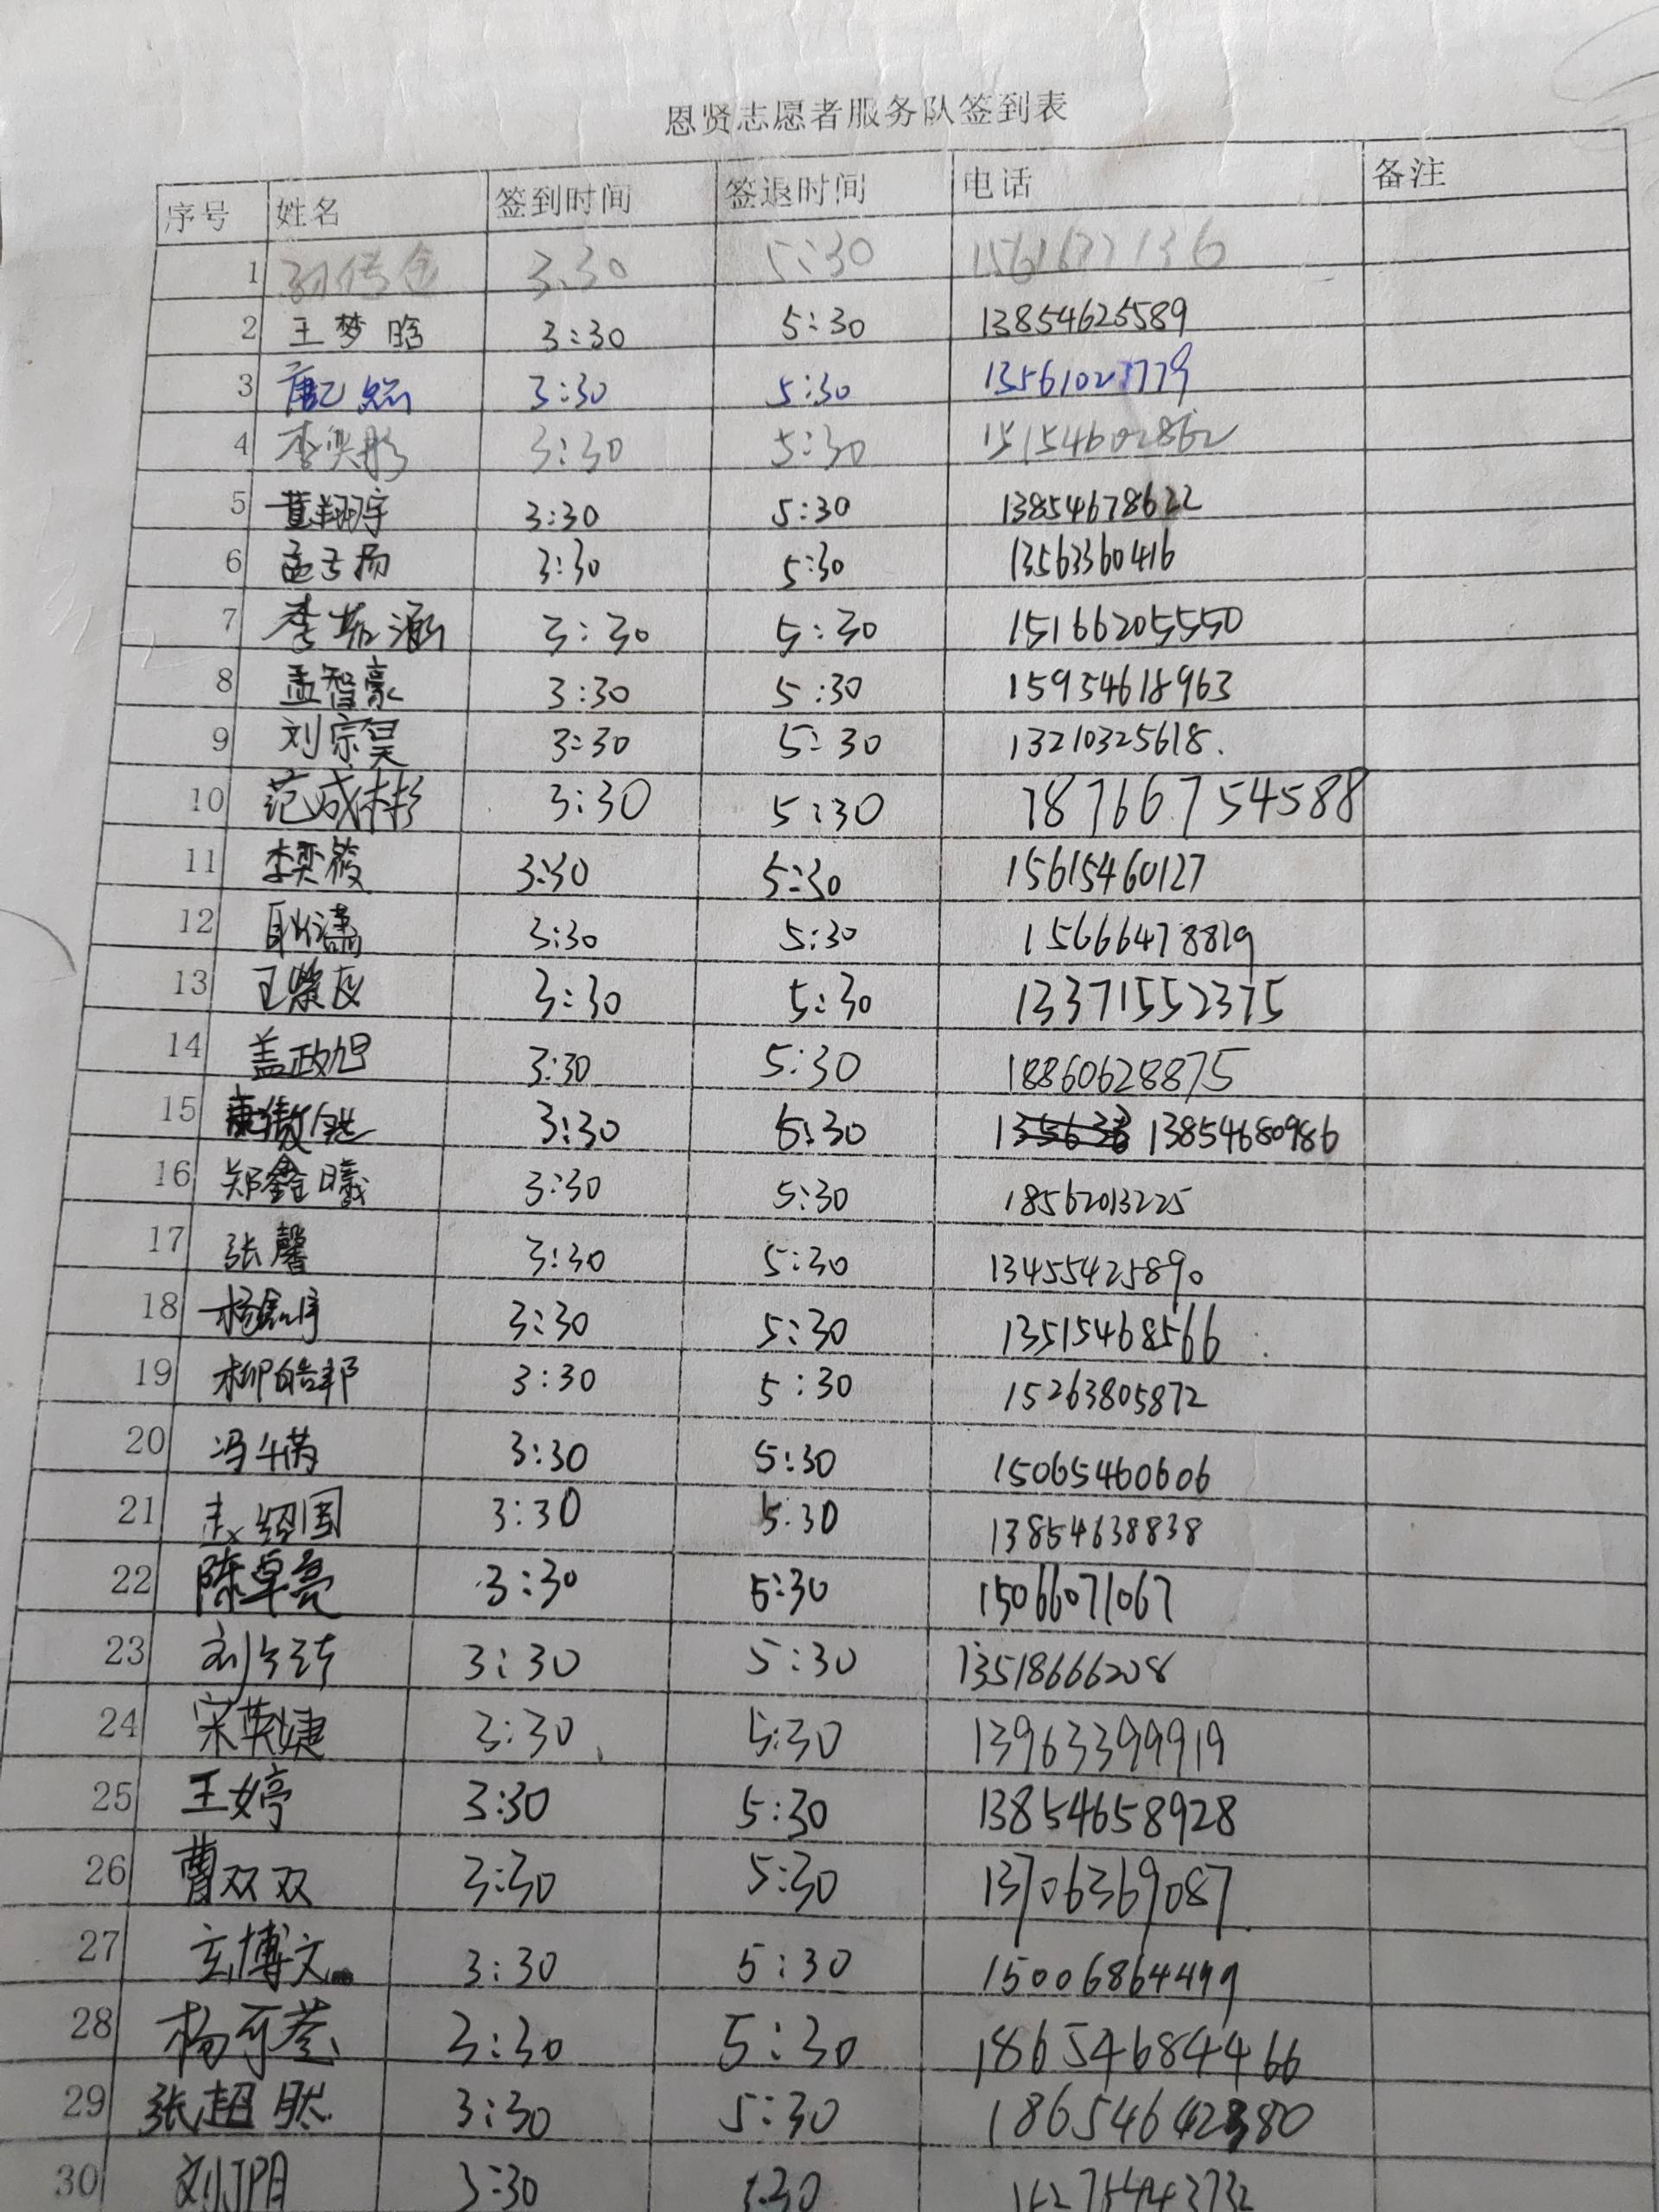 恩贤志愿者服务队签到表
序号 姓名 签到时间 签退时间 电话 备注
1 3:30 5:30
2 王梦晗 3:30 5:30 13854625589
3 3:30 5:30
4 李奕彤 3:30 5:30 15154602862
5 董翔宇 3:30 5:30 13854678622
6 孟子扬 3:30 5:30 13563360416
7 李 涵 3:30 5:30 15166205550
8 孟智豪 3:30 5:30 15954618963
9 刘宗昊 3:30 5:30 13210325618.
10 范成彬 3:30 5:30 18766754588
11 李奕筱 3:30 5:30 15615460127
12 耿潇 3:30 5:30 15666478819
13 3:30 5:30 13371552375
14 盖政旭 3:30 5:30 18860628875
15 3:30 5:30 13854680986
16 郑鑫曦 3:30 5:30 18562013225
17 张馨 3:30 5:30 13455425890
18 3:30 5:30 13515468566
19 柳皓邦 3:30 5:30 15263805872
20 3:30 5:30 15065460606
21 赵绍国 3:30 5:30 13854638838
22 陈卓亮 3:30 5:30 15066071067
23 3:30 5:30 13518666208
24 宋英婕 3:30 5:30 13963399919
25 王婷 3:30 5:30 13854658928
26 曹双双 3:30 5:30 13706369087
27 玄博文 3:30 5:30 15006864499
28 3:30 5:30 18654684466
29 张超然 3:30 5:30 18654642380
30 3:30